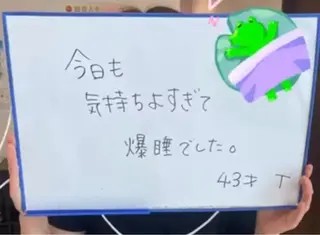 今日も
気持ちよすぎて
爆睡でした。
43才 T